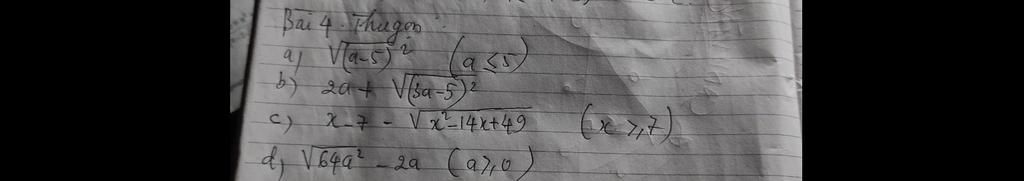 Bài 4. Thu gọn:
a) √(a-5)² (a ≤ 5)
b) 2a + √(3a-5)²
c) x-7 - √x²-14x+49 (x ≥ 7)
d) √64a² - 2a (a ≥ 0)